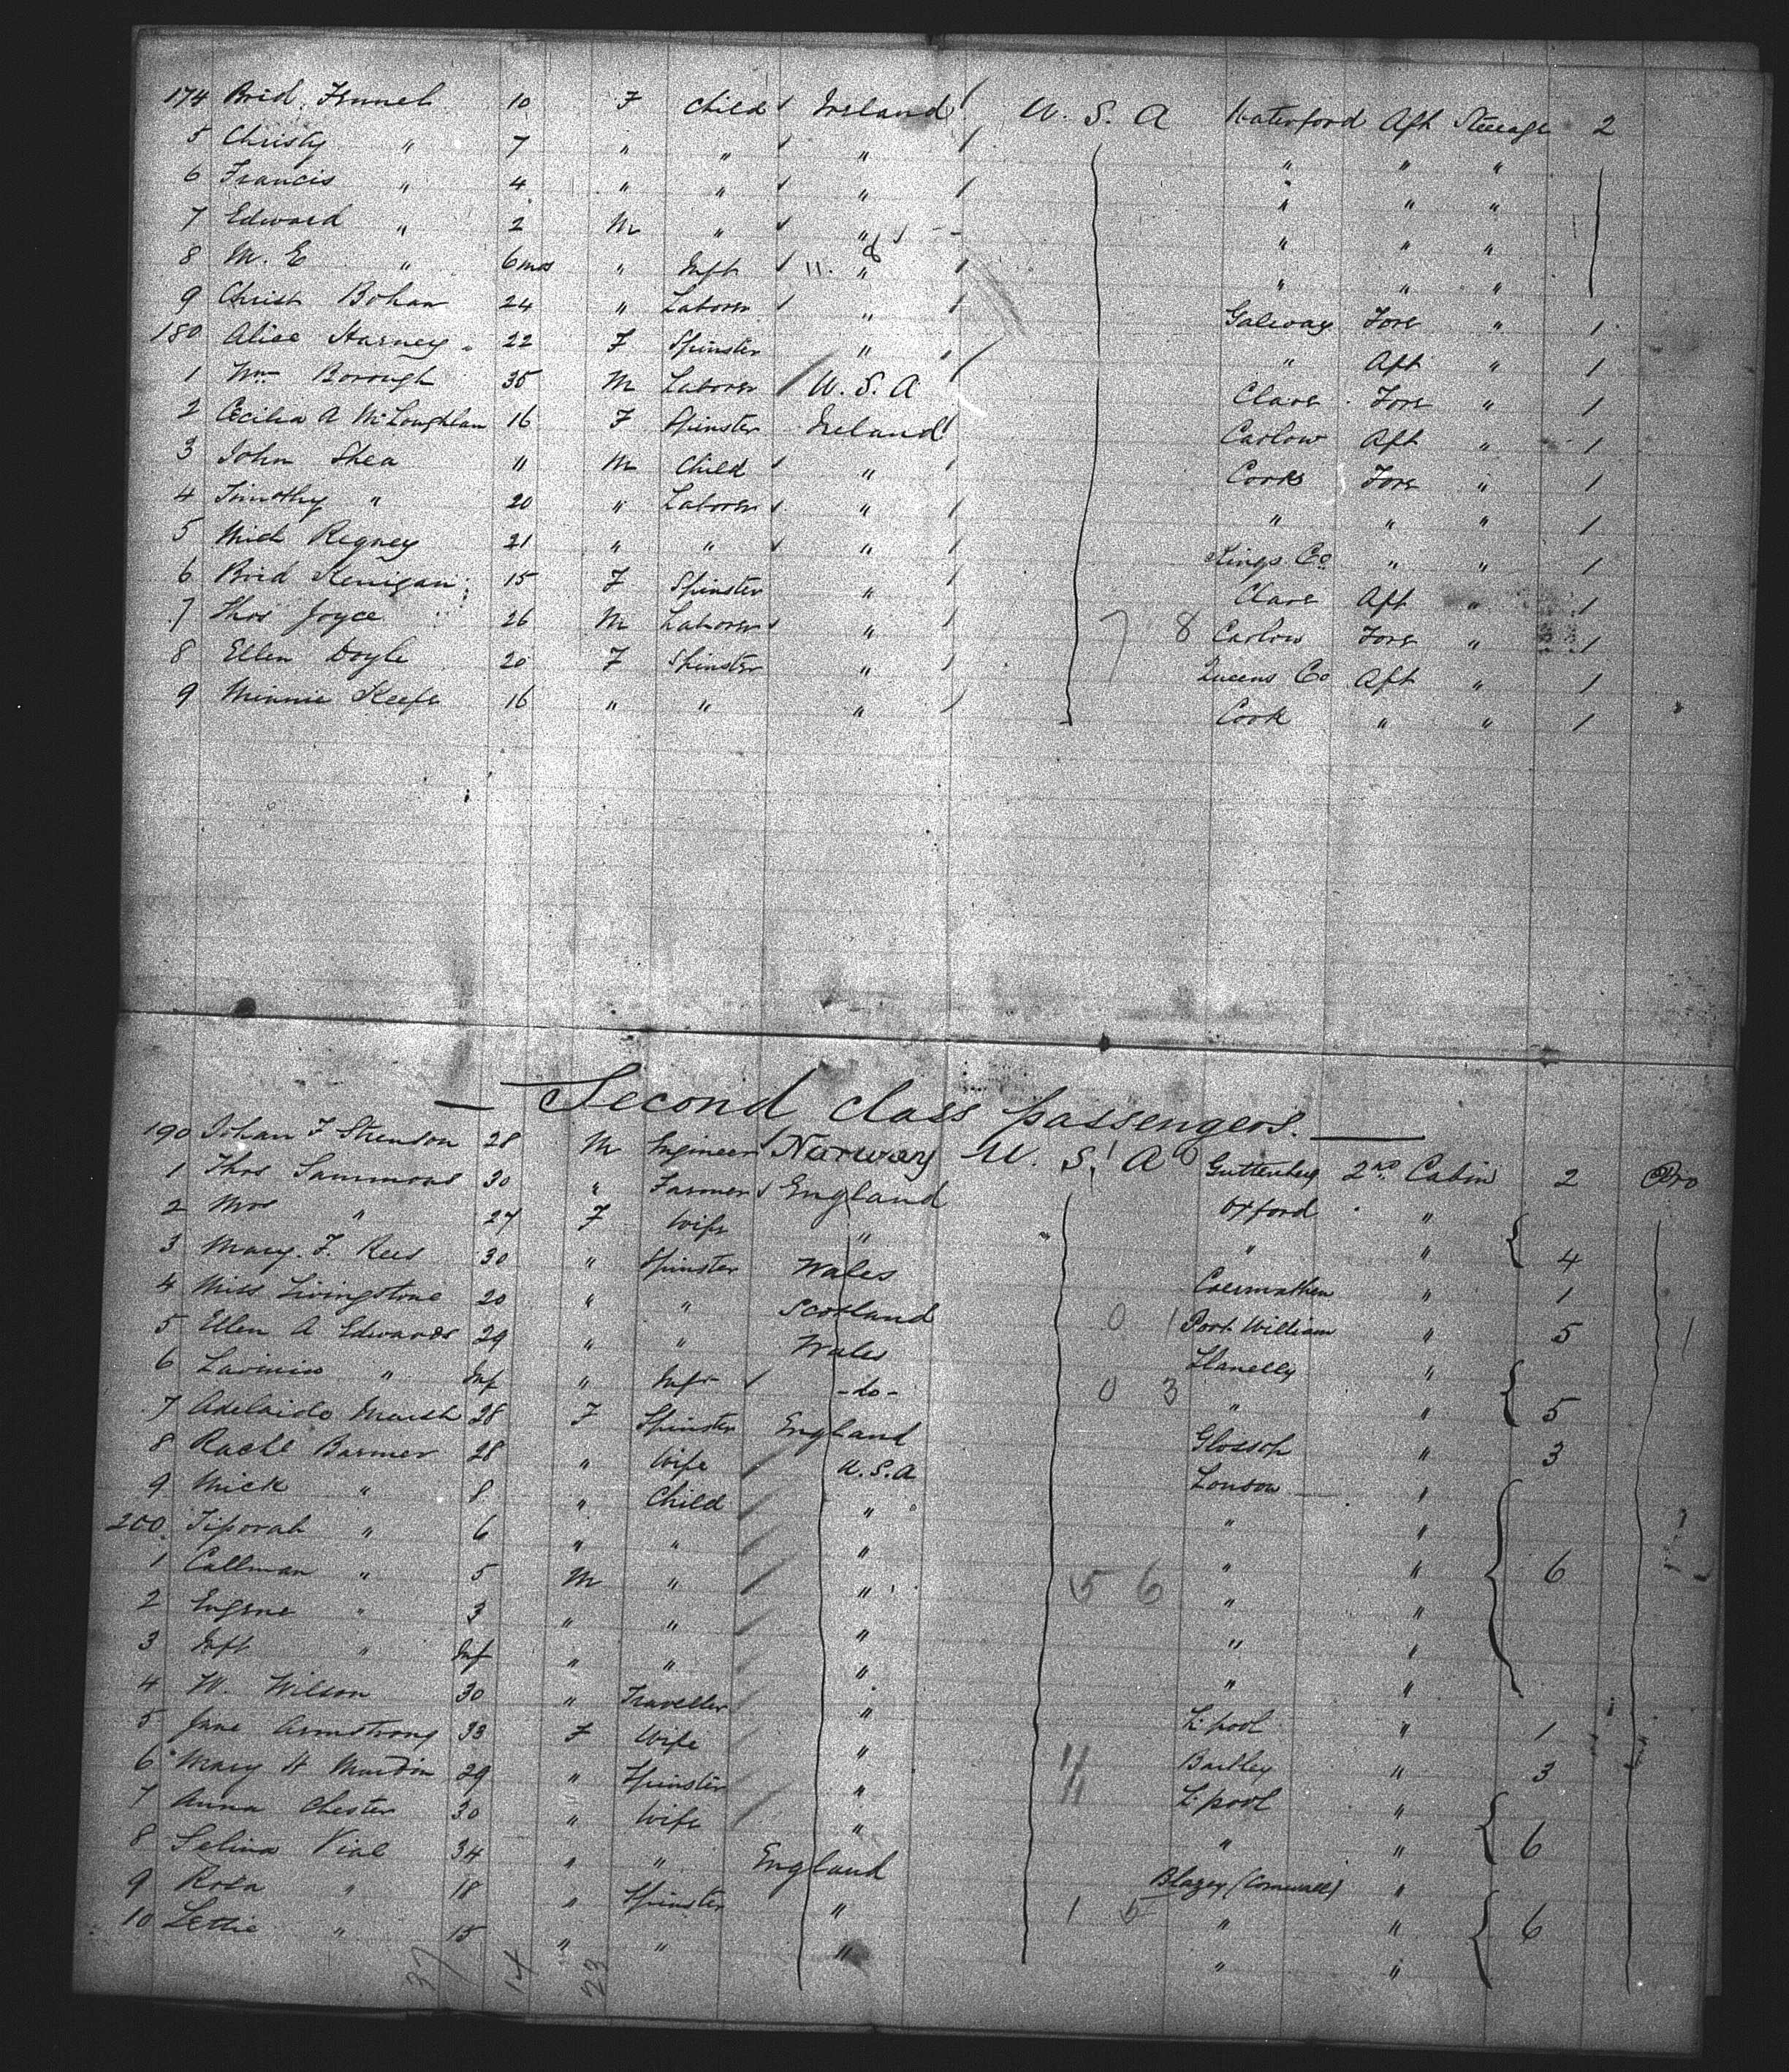 174 Brid. Fennel 10 F Child Ireland U. S. A Waterford Aft Steerage 2
5 Christy " 7 " " " " " "
6 Francis " 4 " " " " " "
7 Edward " 2 M " " " " "
8 M. E " 6 mos " Inft " " " "
9 Christ Bohan 24 " Laborer " Galway Fore " 1
180 Alice Harney 22 F Spinster " " Aft " 1
1 Wm Borough 35 M Laborer U. S. A Clare Fore " 1
2 Cecilia A McLoughlan 16 F Spinster Ireland Carlow Aft " 1
3 John Shea 11 M Child " Cork Fore " 1
4 Timothy " 20 " Laborer " " " " 1
5 Mich Regney 21 " " " Kings Co " " 1
6 Brid Kerrigan 15 F Spinster " Clare Aft " 1
7 Thos Joyce 26 M Laborer " 7 8 Carlow Fore " 1
8 Ellen Doyle 20 F Spinster " Queens Co Aft " 1
9 Minnie Keefe 16 " " " Cork " " 1
— Second class passengers. —
190 Johan F Stenson 28 M Engineer Norway U. S. A Guttenberg 2nd Cabin 2 Pro
1 Thos Sammons 30 " Farmer England Oxford "
2 Mrs " 27 F Wife " " " 4
3 Mary. F. Rees 30 " Spinster Wales Caermathen " 1
4 Miss Livingstone 20 " " Scotland 0 1 Port William " 5
5 Ellen A Edwards 29 " " Wales Llanelly "
6 Lavinia " Inf " Inft -do- 0 3 " " 5
7 Adelaide Marsh 28 F Spinster England Glossop " 3
8 Rachl Barmer 28 " Wife U. S. A London "
9 Mick " 8 " Child " " "
200 Tiporah " 6 " " " " " 6
1 Callman " 5 M " " 5 6 " "
2 Eugene " 3 " " " " "
3 Inft " Inf " " " " "
4 W. Wilson 30 " Traveller " L'pool " 1
5 Jane Armstrong 33 F Wife " Bartley " 3
6 Mary H Mardin 29 " Spinster " L'pool "
7 Anna Chester 30 " Wife " " " 6
8 Selina Vial 34 " " England Blazey (Cornwall) "
9 Rosa " 18 " Spinster " 1 5 " " 6
10 Lettie " 15 " " " " "
37 14 23